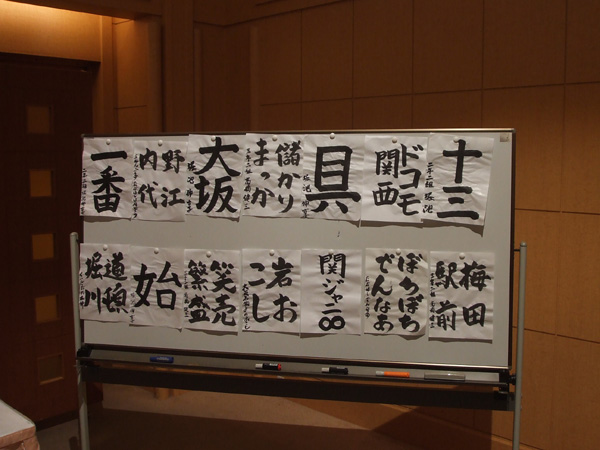 十三
ドコモ
関西
具
儲かり
まっか
大坂
野江
内代
一番
梅田
駅前
ぼちぼち
でんなあ
関ジャニ∞
岩お
こし
笑売
繁盛
始
道頓
堀川